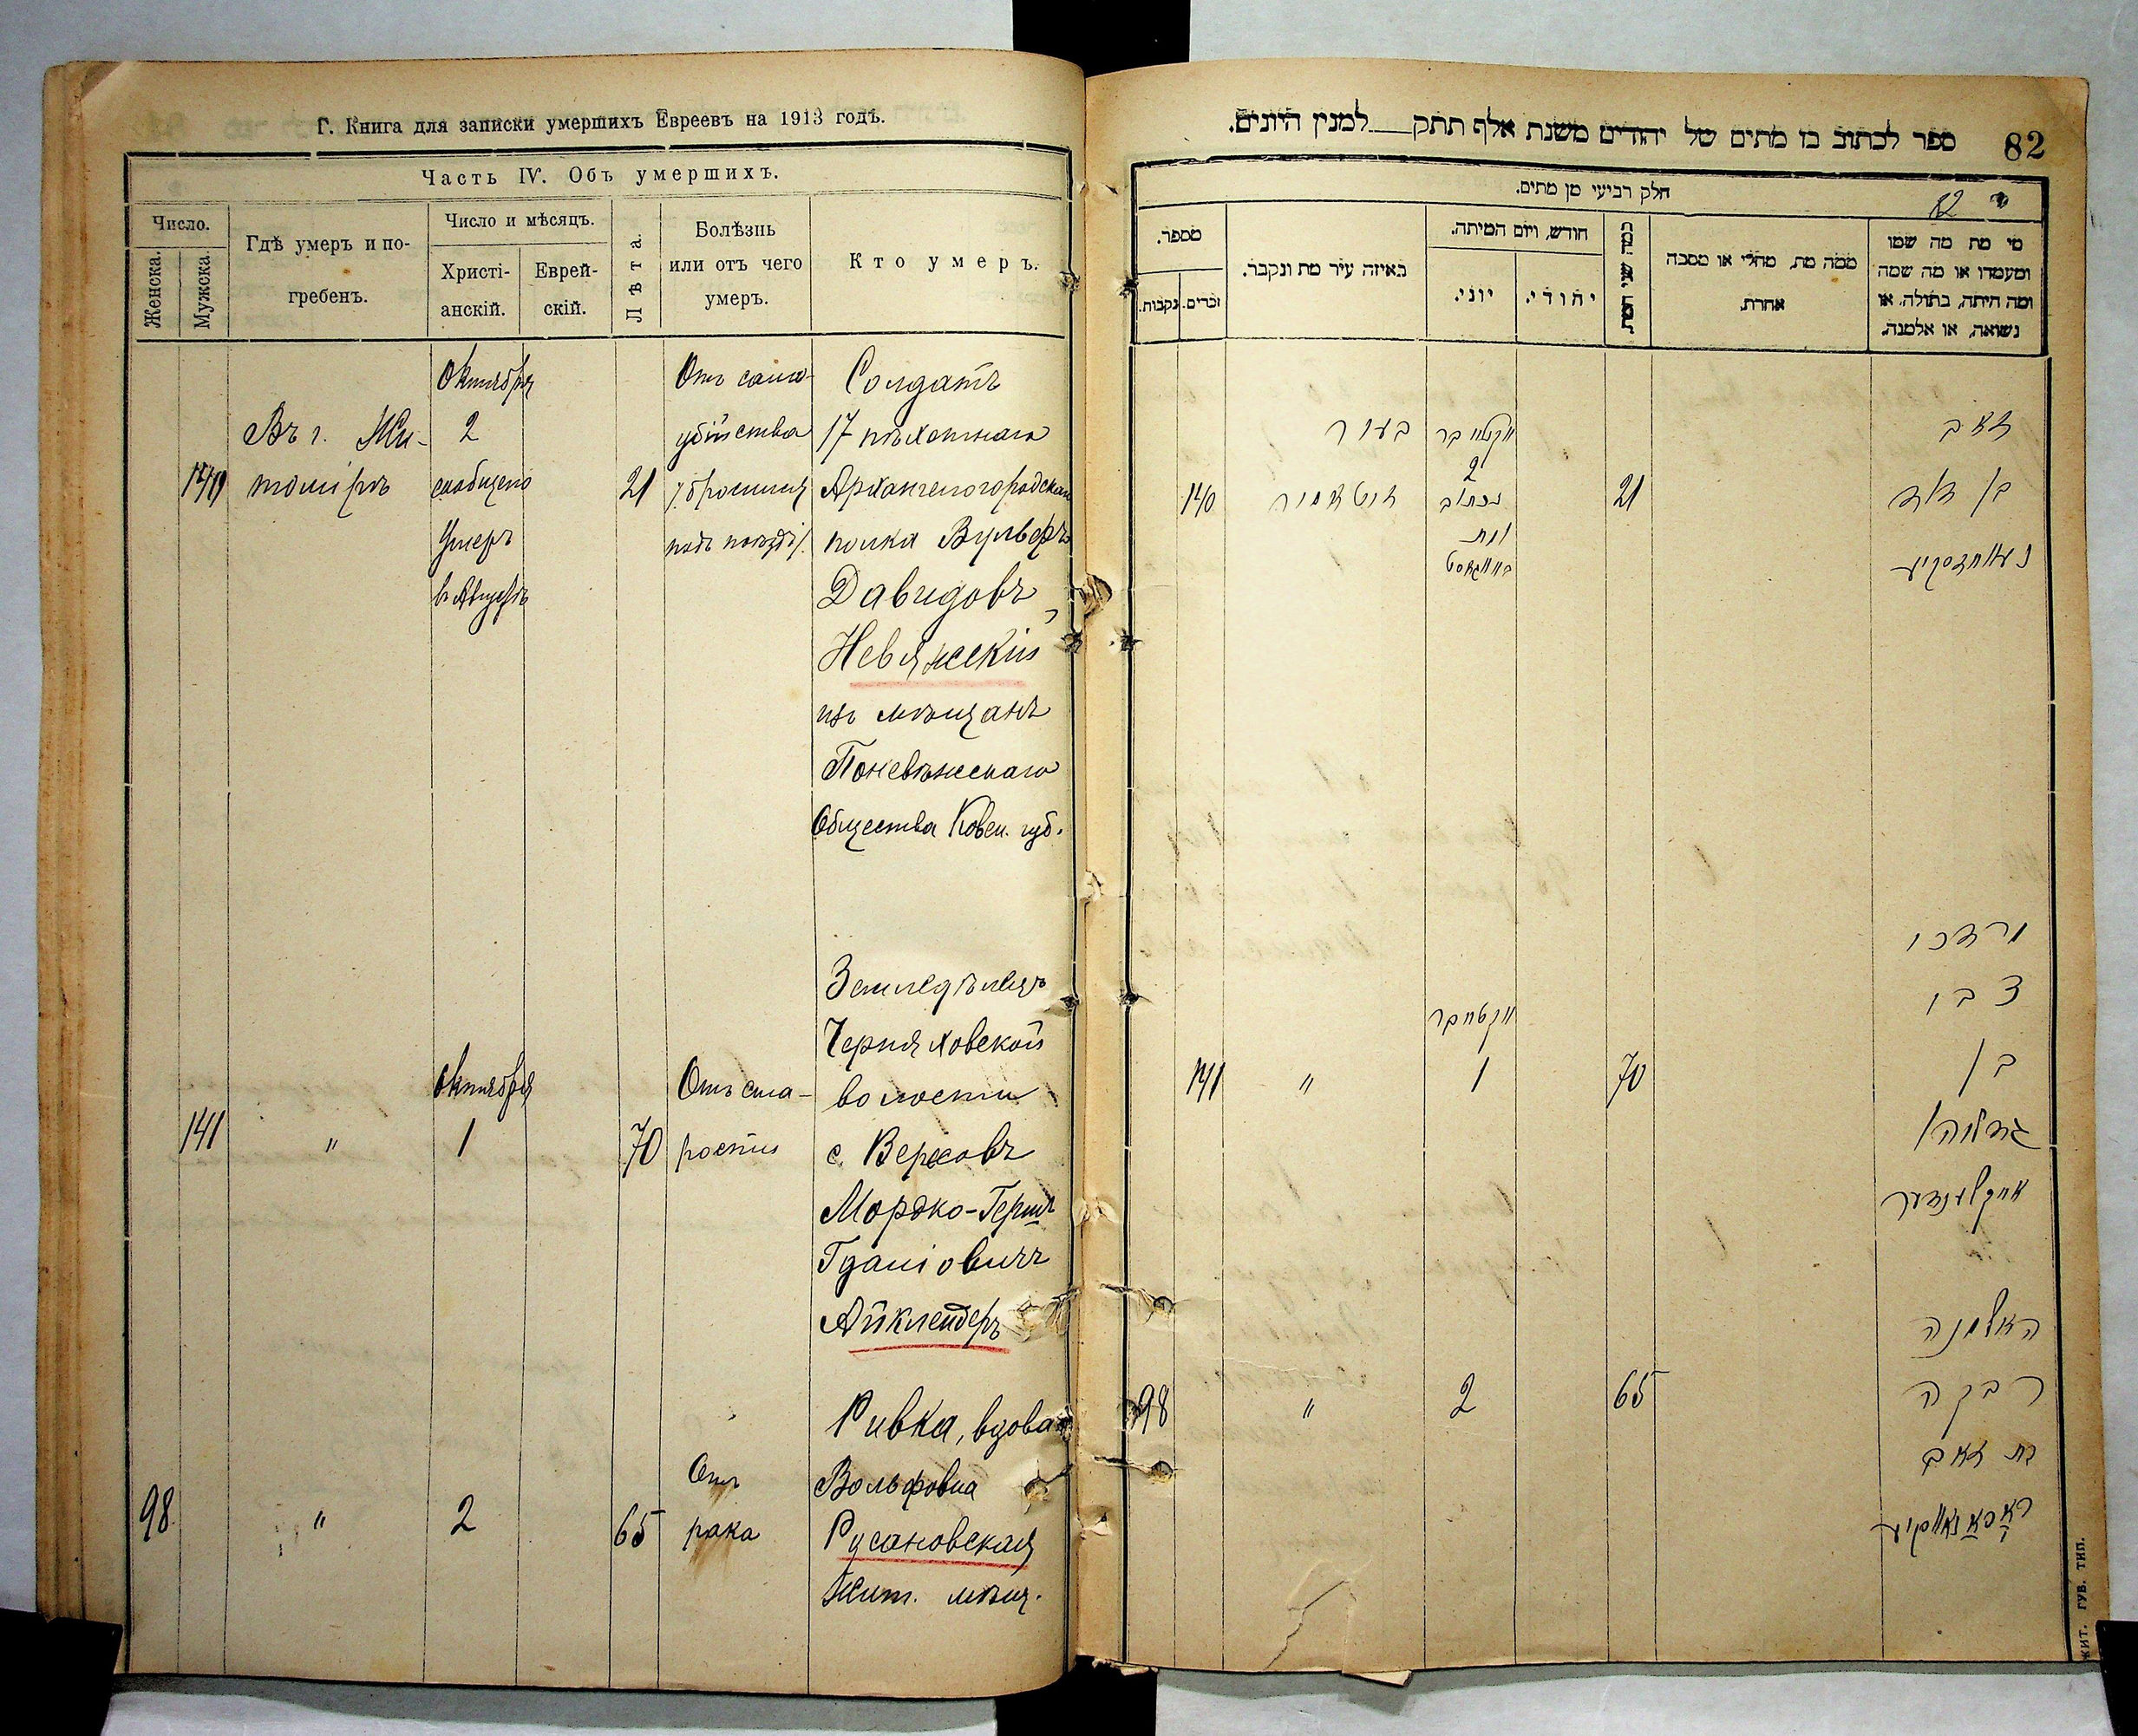 Г. Книга для записки умершихъ Евреевъ на 1913 годъ.
Часть IV. Объ умершихъ.
Число.
Женска.
Мужска.
Гдѣ умеръ и по-
гребенъ.
Число и мѣсяцъ.
Христі-
анскій.
Еврей-
скій.
Лѣта.
Болѣзнь
или отъ чего
умеръ.
Кто умеръ.
140
Въ г. Жи-
томірѣ
Октября
2
сообщено
Умеръ
въ Августѣ
21
Отъ само-
убійства
/бросился
подъ поѣздъ/.
Солдатъ
17 пѣхотнаго
Архангелогородскаго
полка Вульфъ
Давидовъ
Невяжскій
изъ мѣщанъ
Поневѣжскаго
Общества Ковен. губ.
141
"
Октября
1
70
Отъ ста-
рости
Земледѣлецъ
Черняховской
волости
с. Вересовъ
Мордко-Гершъ
Гдаліовичъ
Айклендеръ
98
"
2
65
Отъ
рака
Ривка, вдова
Вольфовна
Русановская
Жит. мѣщ.
ספר לכתוב בו מתים של יהודים משנת אלף תתק למנין היונים.
82
חלק רביעי מן מתים.
82
מספר.
נקבות.
זכרים.
באיזה עיר מת ונקבר.
חודש, ויום המיתה.
יוני.
יהודי.
כמה שני המת.
ממה מת, מחלי או מסבה
אחרת.
מי מת מה שמו
ומעמדו או מה שמה
ומה היתה, בתולה, או
נשואה, או אלמנה.
140
בעיר
זיטאמיר
אקטאבר
2
נכתוב
ומת
באווגוסט
21
זאב
בן דוד
נעוויאזסקיע
141
"
אקטאבר
1
70
מרדכי
צבי
בן
גדליהו
אייקלענדער
98
"
2
65
האלמנה
רבקה
בת זאב
ראסאנאווסקיע
ЖИТ. ГУБ. ТИП.